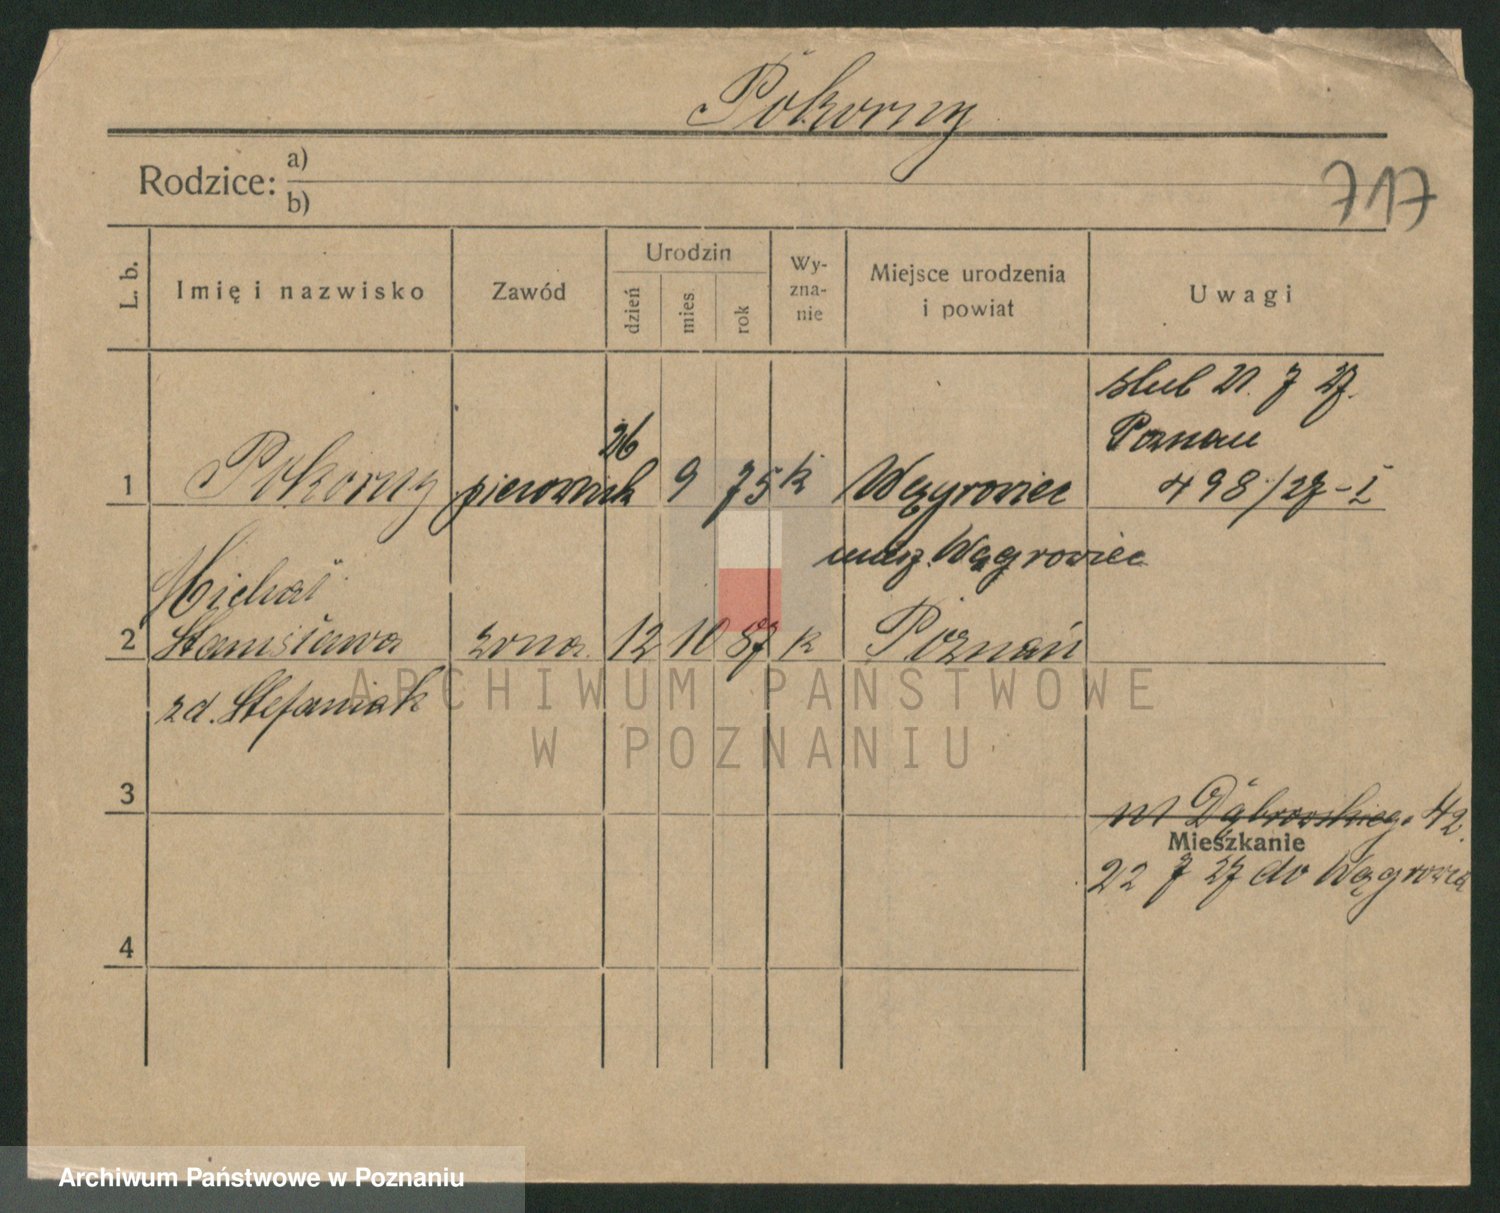 Pokorny
Rodzice: a)
b)
717
L. b.
Imię i nazwisko
Zawód
Urodzin
dzień
mies
rok
Wy-
zna-
nie
Miejsce urodzenia
i powiat
Uwagi
ślub 21. 7 27.
Poznań
498/27-I
1 Pokorny 26 9 75 k Wągrowiec
Michał
miesz. Wągrowiec
2 Stanisława żona 12 10 87 k Poznań
zd. Stefaniak
3
Dąbrowskiego 42.
Mieszkanie
22 7 27 do Wągrowca
4
ARCHIWUM PAŃSTWOWE
W POZNANIU
Archiwum Państwowe w Poznaniu